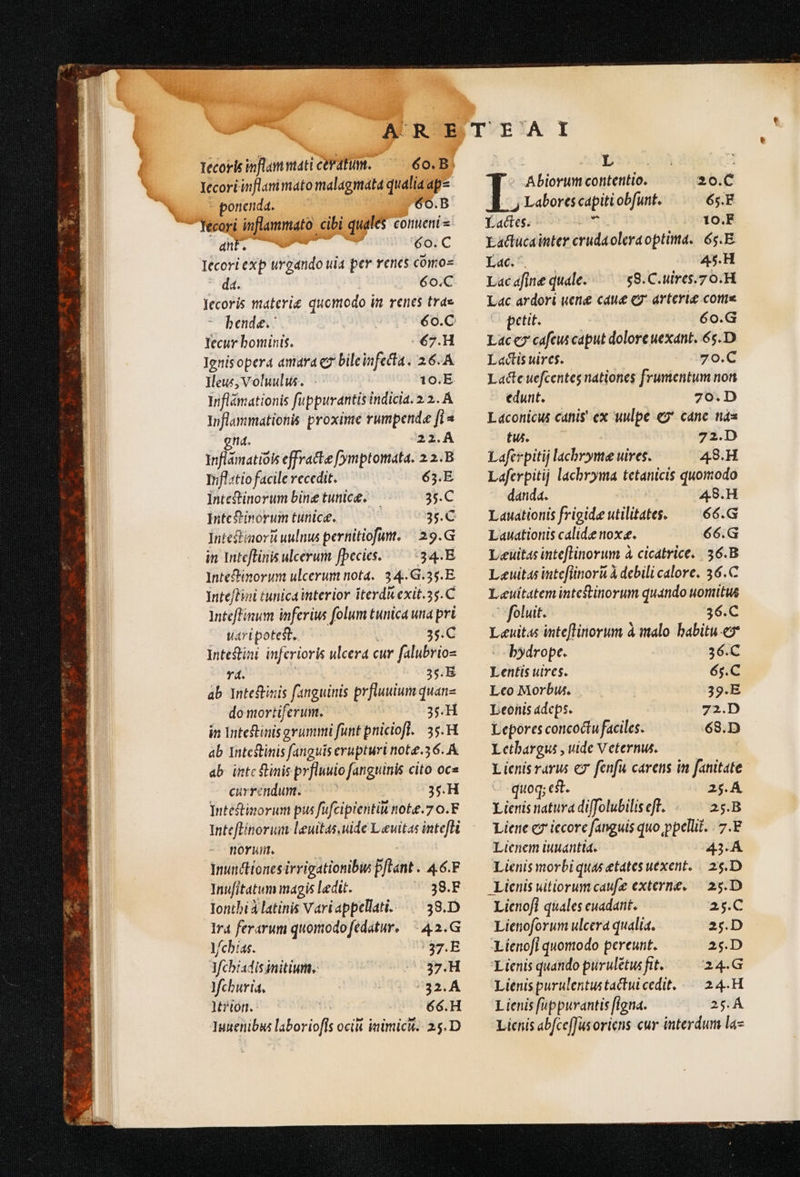 ARETEAI
Iecoris inflammati ceratum. 60.B
Iecori inflammato malagmata qualia ap=
ponenda. 60.B
Iecori inflammato cibi quales conueni=
ant. 60.C
Iecori exp urgando uia per renes cōmo=
da. 60.C
Iecoris materiæ quomodo in renes tra=
hendæ. 60.C
Iecur hominis. 67.H
Ignis opera amara & bile infecta. 26.A
Ileus, Voluulus. 10.E
Inflāmationis suppurantis indicia. 22.A
Inflammationis proxime rumpendæ si=
gna. 22.A
Inflāmatiōis effractæ symptomata. 22.B
Inflatio facile recedit. 63.E
Intestinorum binæ tunicæ. 35.C
Intestinorum tunicæ. 35.C
Intestinorū uulnus pernitiosum. 29.G
in Intestinis ulcerum species. 34.E
Intestinorum ulcerum nota. 34.G.35.E
Intestini tunica interior iterdū exit. 35.C
Intestinum inferius solum tunica una pri
uari potest. 35.C
Intestini inferioris ulcera cur salubrio=
ra. 35.E
ab Intestinis sanguinis prfluuium quan=
do mortiferum. 35.H
in Intestinis grummi sunt pniciosi. 35.H
ab Intestinis sanguis erupturi notæ. 36.A
ab intestinis prfluuio sanguinis cito oc=
currendum. 35.H
Intestinorum pus suscipientiū notæ. 70.F
Intestinorum læuitas, uide Læuitas intesti
norum.
Inunctiones irrigationibus pstant. 46.F
Inusitatum magis lædit. 38.F
Ionthi à latinis Vari appellati. 38.D
Ira ferarum quomodo sedatur. 42.G
Ischias. 37.E
Ischiadis initium. 37.H
Ischuria. 32.A
Itrion. 66.H
Iuuenibus laboriosis ociū inimicū. 25.D
L
Labiorum contentio. 20.C
Labores capiti obsunt. 65.F
Lactes. 10.F
Lactuca inter cruda olera optima. 65.E
Lac. 45.H
Lac asinæ quale. 58.C. uires. 70.H
Lac ardori uenæ cauæ & arteriæ com=
petit. 60.G
Lac & caseus caput dolore uexant. 65.D
Lactis uires. 70.C
Lacte uescentes nationes frumentum non
edunt. 70.D
Laconicus canis ex uulpe & cane na=
tus. 72.D
Laserpitij lachrymæ uires. 48.H
Laserpitij lachryma tetanicis quomodo
danda. 48.H
Lauationis frigidæ utilitates. 66.G
Lauationis calidæ noxæ. 66.G
Læuitas intestinorum à cicatrice. 36.B
Læuitas intestinorū à debili calore. 36.C
Læuitatem intestinorum quando uomitus
soluit. 36.C
Læuitas intestinorum à malo habitu &
hydrope. 36.C
Lentis uires. 65.C
Leo Morbus. 39.E
Leonis adeps. 72.D
Lepores concoctu faciles. 68.D
Lethargus, uide Veternus.
Lienis rarus & sensu carens in sanitate
quoq; est. 25.A
Lienis natura dissolubilis est. 25.B
Liene & iecore sanguis quo ppellit. 7.F
Lienem iuuantia. 43.A
Lienis morbi quas ætates uexent. 25.D
Lienis uitiorum causæ externæ. 25.D
Lienosi quales euadant. 25.C
Lienosorum ulcera qualia. 25.D
Lienosi quomodo pereunt. 25.D
Lienis quando purulētus fit. 24.G
Lienis purulentus tactui cedit. 24.H
Lienis suppurantis signa. 25.A
Lienis abscessus oriens cur interdum la=